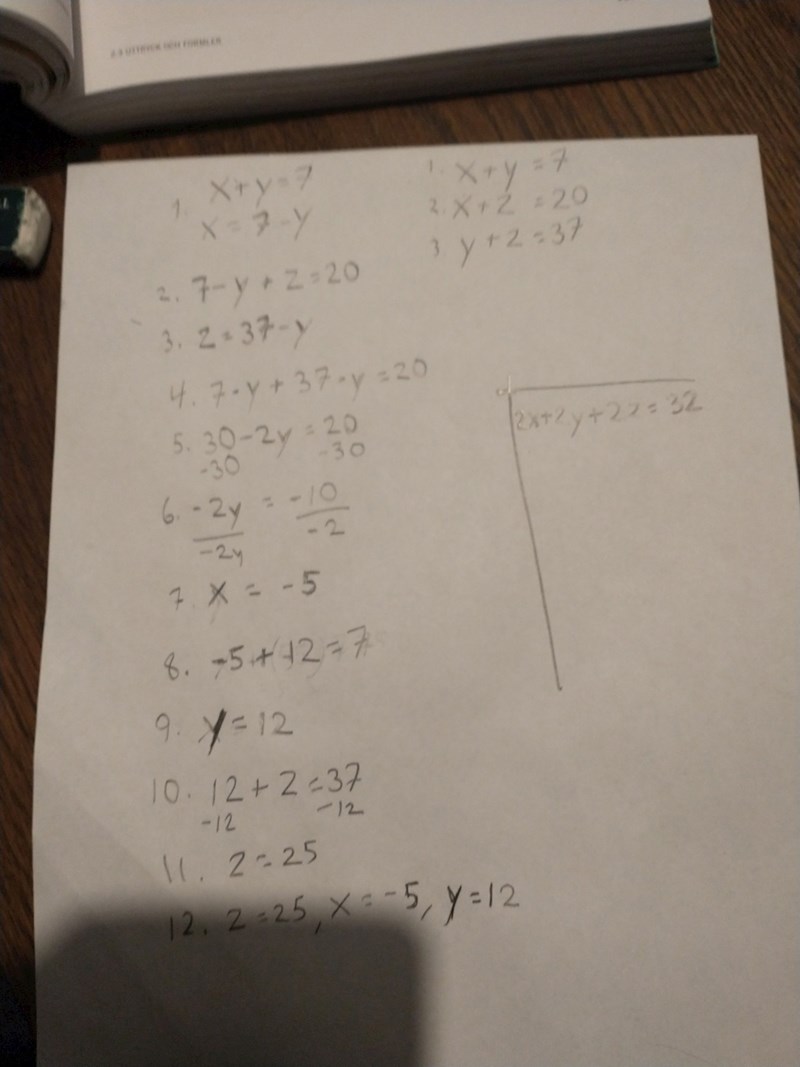 2.3 UTTRYCK OCH FORMLER
1. x+y=7
x=7-y
2. 7-y+z=20
3. z=37-y
4. 7-y+37-y=20
5. 30-2y=20
-30 -30
6. -2y = -10
-2y -2
7. x = -5
8. -5+12=7
9. y=12
10. 12+z=37
-12 -12
11. z=25
12. z=25, x=-5, y=12
1. x+y=7
2. x+z=20
3. y+z=37
2x+2y+2z=32